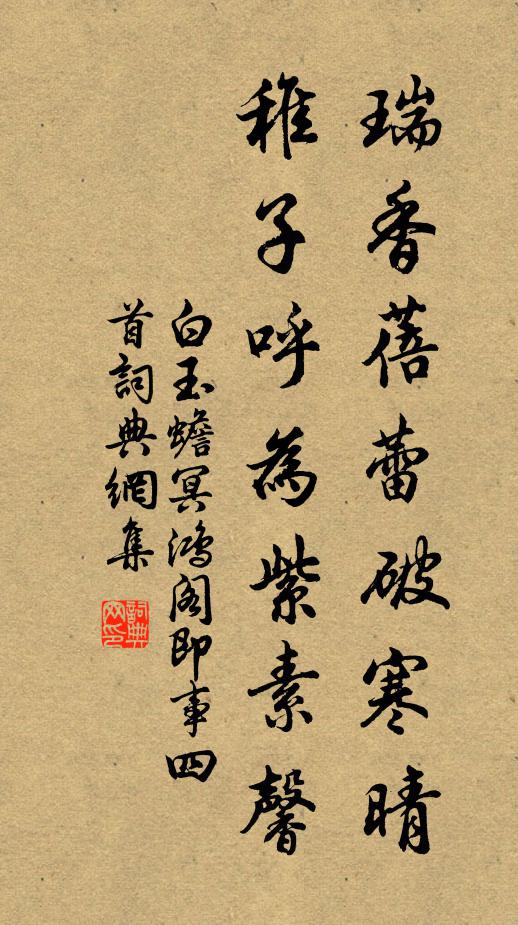 瑞香蓓蕾破寒晴
稚子呼為紫素馨
白玉蟾冥鴻閣即事四
首詞典網集
詞典
网印